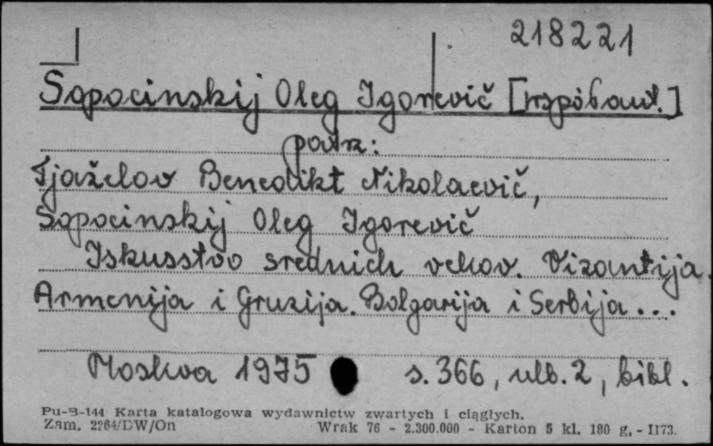 218221
Sopocinskij Oleg Igorevič [współaut.]
patrz:
Tjaželov Benedikt Nikolaevič,
Sopocinskij Oleg Igorevič
Iskusstvo srednich vekov. Vizantija.
Armenija i Gruzija. Bolgarija i Serbija...
Moskva 1975 s. 366, ulb. 2, bibl.
Pu-B-144 Karta katalogowa wydawnictw zwartych i ciągłych.
Zam. 2264/DW/On Wrak 76 - 2.300.000 - Karton 5 kl. 180 g. - II73.